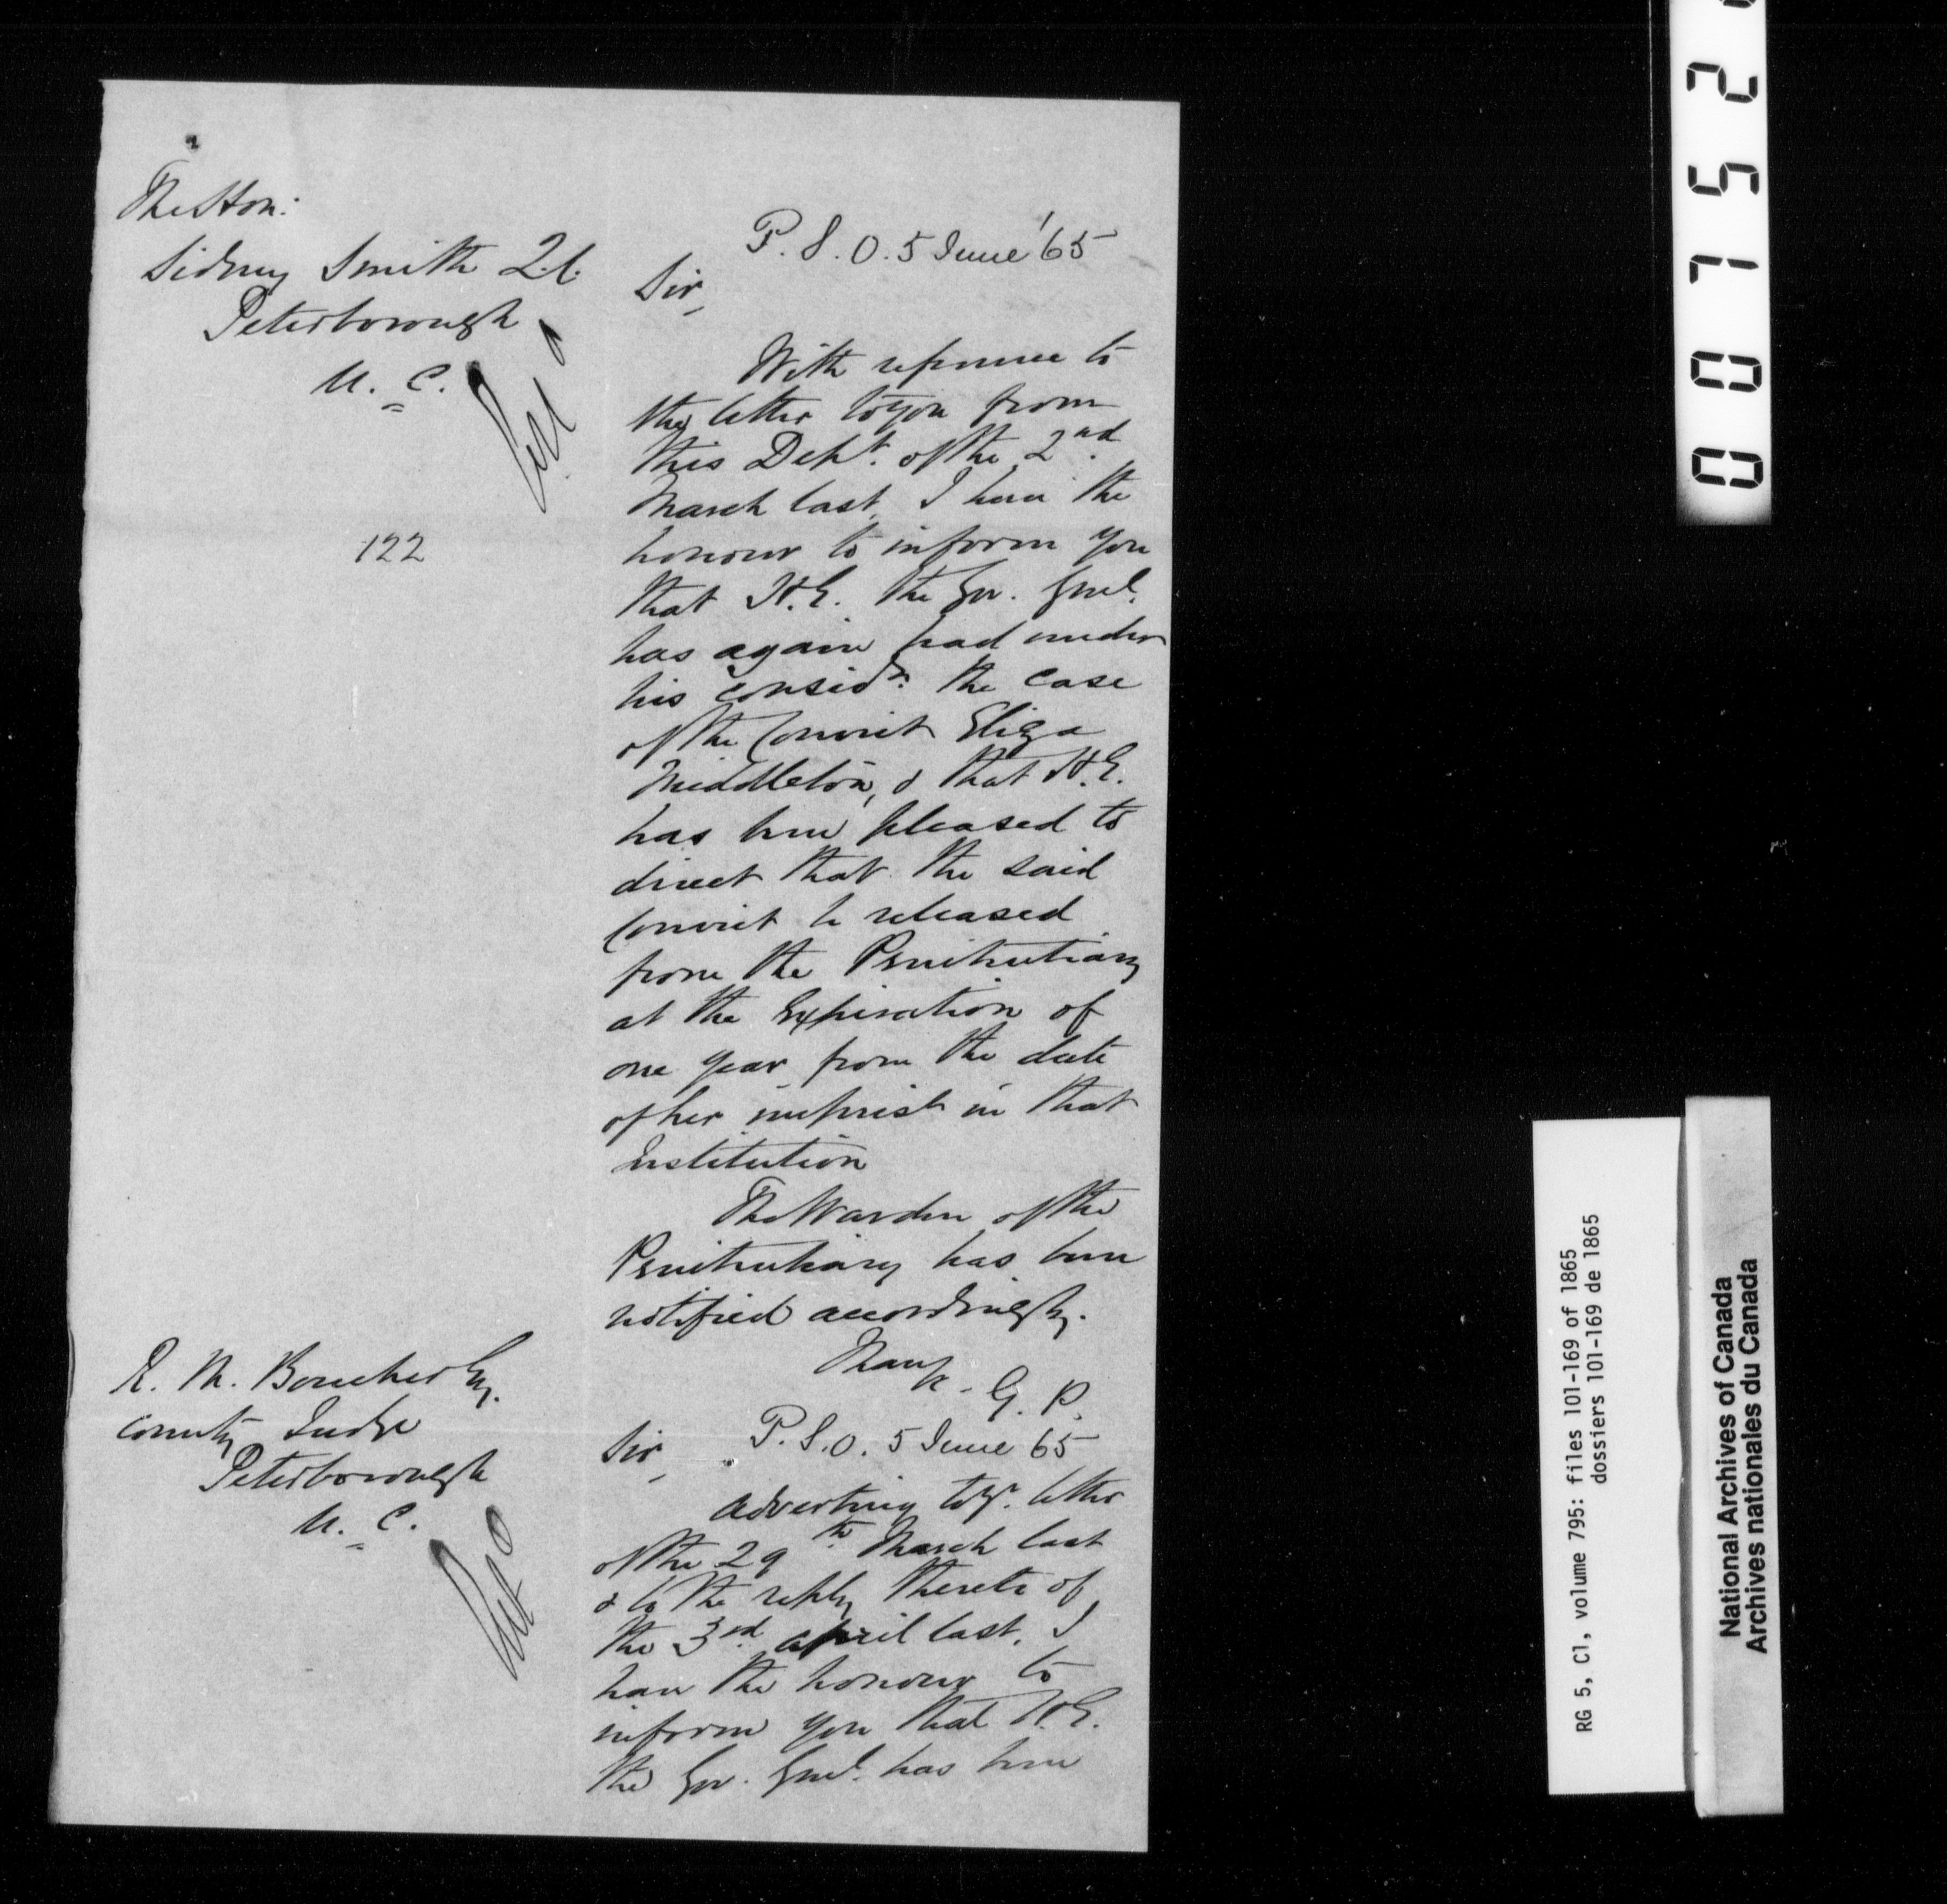 The Hon:
Sidney Smith Q.C.
Peterborough
U. C.
122
P. S. O. 5 June '65
Sir,
With reference to
the letter to you from
this Dept. of the 2nd.
March last, I have the
honour to inform you
that H.E. the Gov. Genl.
has again had under
his considn. the case
of the Convict Eliza
Middleton, & that H.E.
has been pleased to
direct that the said
Convict be released
from the Penitentiary
at the Expiration of
one year from the date
of her imprist in that
Institution
The Warden of the
Penitentiary has been
notified accordingly.
G. P.
R. M. Boucher Esq.
County Judge
Peterborough
U. C.
P. S. O. 5 June 65
Sir,
Adverting to yr. letter
of the 29th March last
& to the reply thereto of
the 3rd April last, I
have the honour to
inform you that H.E.
the Gov. Genl. has been
00752
RG 5, C1, volume 795: files 101-169 of 1865
dossiers 101-169 de 1865
National Archives of Canada
Archives nationales du Canada